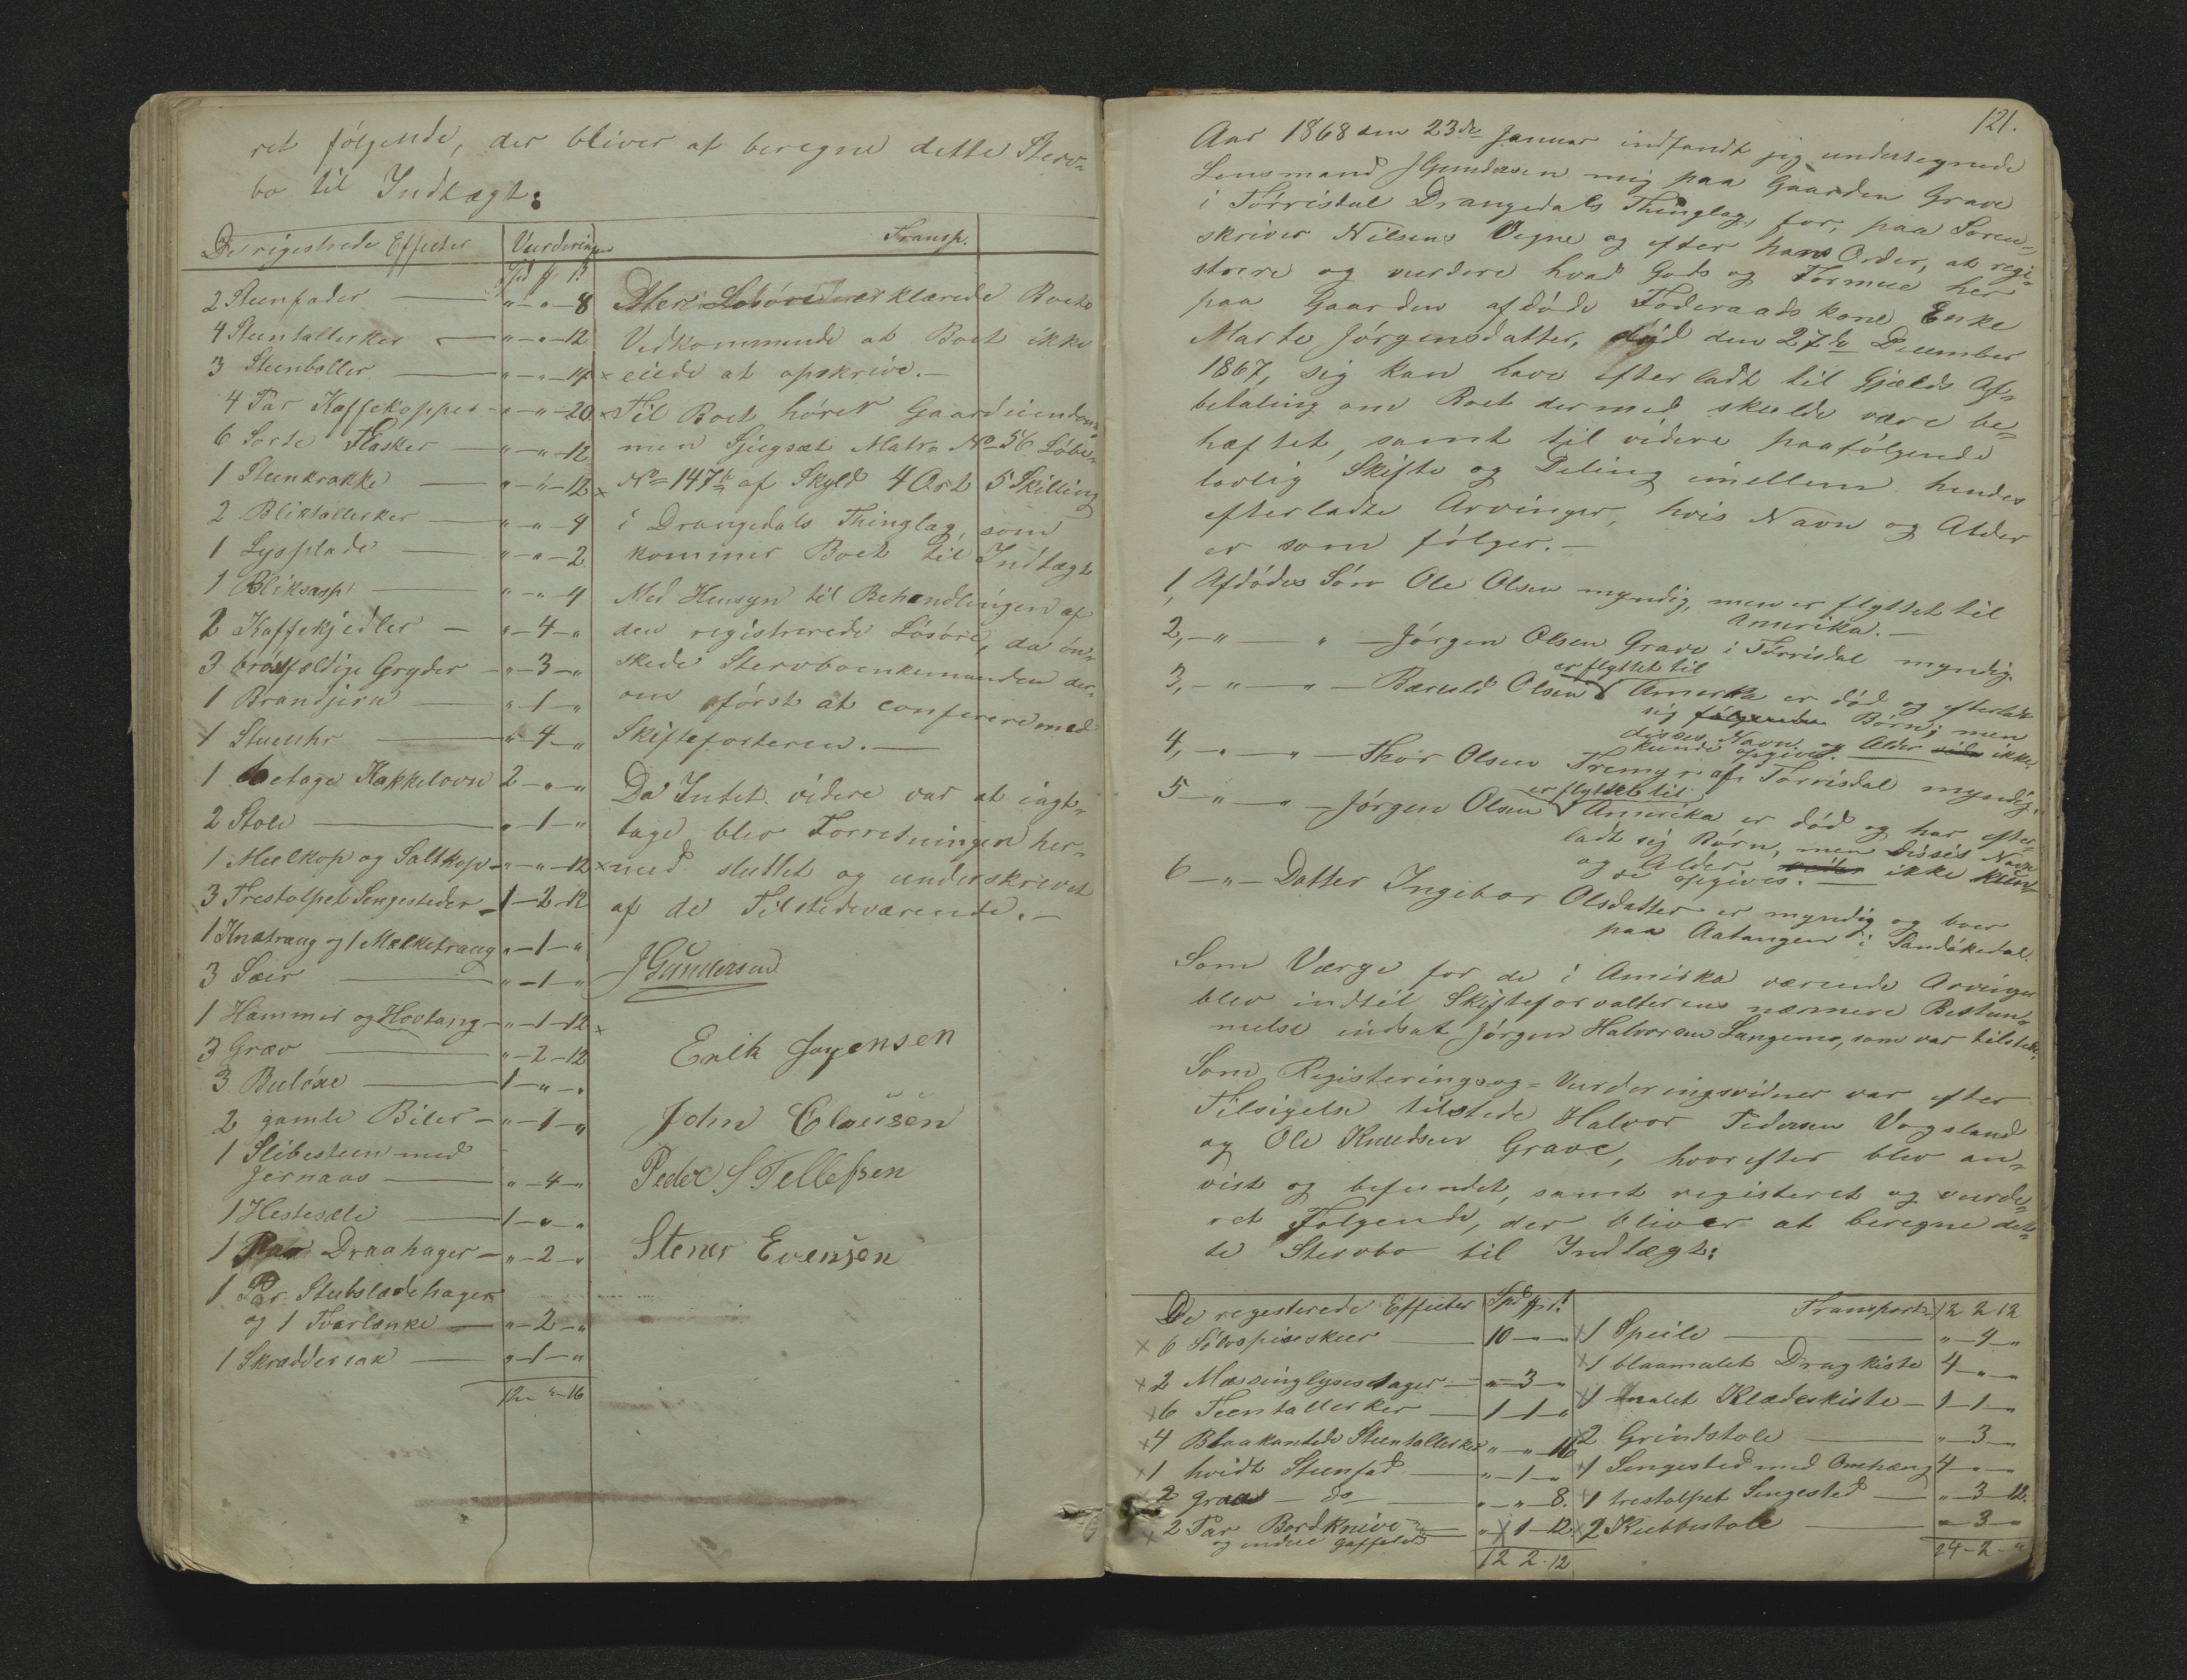 ret følgende, der bliver at beregne dette Sterv-
bo til Indtægt:
De rigestrede Effecter Vurderingen
Spd ß
2 Steenfader " - " - 8
4 Steentallerker " - " - 12
3 Steenboller " - " - 14 x
4 Par Kaffekopper " - " - 20 x
6 Sorte Flasker " - " - 12
1 Steenkrakke " - " - 12 x
2 Bliktallerker " - " - 4
1 Lysplade " - " - 2
1 Blikausp " - " - 4
2 Kaffekjedler " - 4 - "
3 Gryder " - 3 - "
1 Brandjern " - 1 - "
1 Stueuhr " - 4 - "
1 toetages Kakkelovn 2 - " - "
2 Stole " - 1 - "
1 Meelkop og Saltkop " - " - 12 x
3 Trestolpet Sengesteder 1 - 2 - 12
1 Knatraug og 1 Melketraug " - 1 - "
3 Sæer " - 1 - "
1 Hammer og Hovtang " - 1 - 12 x
3 Græv " - 2 - 12
3 Buløxe 1 - " - "
2 gamle Biler " - 1 - "
1 Slibesteen med
Jernaas " - 4 - "
1 Hestesæle 1 - " - "
1 Par Draahager " - 2 - "
1 Par Stubslædehager
og 1 Tværlænke " - 2 - "
1 Skræddersax " - 1 - "
12 - " - 16
Transp.
erklærede Boets
Vedkommende at Boet ikke
eiede at opskrive. -
Til Boet hører Gaardeiendom-
men Sjugsæt Matr No 56 Løbe-
No 147b af Skyld 4 Ort 5 Skilling
i Drangedals Thinglag, som
kommer Boet til Indtægt
Med Hensyn til Behandlingen af
den registrerede Løsøre, da øn-
skede Stervboenkemanden der-
om først at conferere med
Skifteforteren. -
Da Intet videre var at iagt-
tage blev Forretningen her-
med sluttet og underskrevet
af de Tilstedeværende. -
JGundersen
Erik Joyensen
John Clausen
Peder S Tellefsen
Stener Evensen
121.
Aar 1868 den 23de Januar indfandt jeg undertegnede
Lensmand JGundersen mig paa Gaarden Grave
i Tørrisdal Drangedals Thinglag, for, paa Soren-
skriver Nilsens Vegne og efter hans Order, at regi-
strere og vurdere hvad Gods og Formue her
paa Gaarden afdøde Føderaadskone Enke
Marte Jørgensdatter, død den 27de December
1867, sig kan have efterladt til Gjælds Af-
betaling om Boet dermed skulde være be-
hæftet, samt til videre paafølgende
lovlig Skifte og Deling imellem hendes
efterladte Arvinger, hvis Navn og Alder
er som følger. -
1, Afdødes Søn Ole Olsen myndig, men er flyttet til
Amerika. -
2, - " - " - Jørgen Olsen Grave i Tørrisdal myndig.
er flyttet til
3, - " - " - Bæruld Olsen Amerika er død og efterladt
sig følgende Børn; men
disses Navn og Alder vides ikke
kunde opgives.
4, - " - " - Thor Olsen Tremyr af Tørrisdal myndig.
er flyttet til
5 - " - " - Jørgen Olsen Amerika er død og har efter-
ladt sig Børn, men disses Navn
og Alder vides ikke kun-
de opgives. -
6 - " - Datter Ingebor Olsdatter er myndig og boer
paa Aatangen i Sandøkedal.
Som Værge for de i Amerika værende Arvinger
blev indtil Skifteforvalterens nærmere Bestem-
melse indsat Jørgen Halvorsen Langemo, som var tilstede.
Som Registerings og Vurderingsvidner var efter
Tilsigelse tilstede Halvor Pedersen Vogsland
og Ole Knudsen Grave, hvorefter blev an-
vist og befundet, samt registeret og vurde-
ret Følgende, der bliver at beregne det-
te Stervbo til Indtægt:
De regesterede Effecter Spd ß
x 6 Sølvspiseskeer 10 - " - "
x 2 Messinglysestager " - 3 - "
x 6 Teentallerker 1 - 1 - "
x 4 Blaakantede Steentallerker " - " - 16
x 1 hvidt Steenfad " - 1 - "
x 2 graae - do " - " - 8.
x 2 Par Bordknive " - 1 - 12
og endeel gaffeler
12 2 - 12
Transport 12 2 12
x 1 Speile " - 4 - "
x 1 blaamalet Dragkiste 4 - " - "
x 1 malet Klædeskiste 1 - 1 - "
x 2 Grindstole " - 3 - "
x 1 Sengested med Omhæng 4 - " - "
x 1 trestolpet Sengested " - 3 - 12.
x 2 Kubbestole " - 3 - "
24 - 2 - "